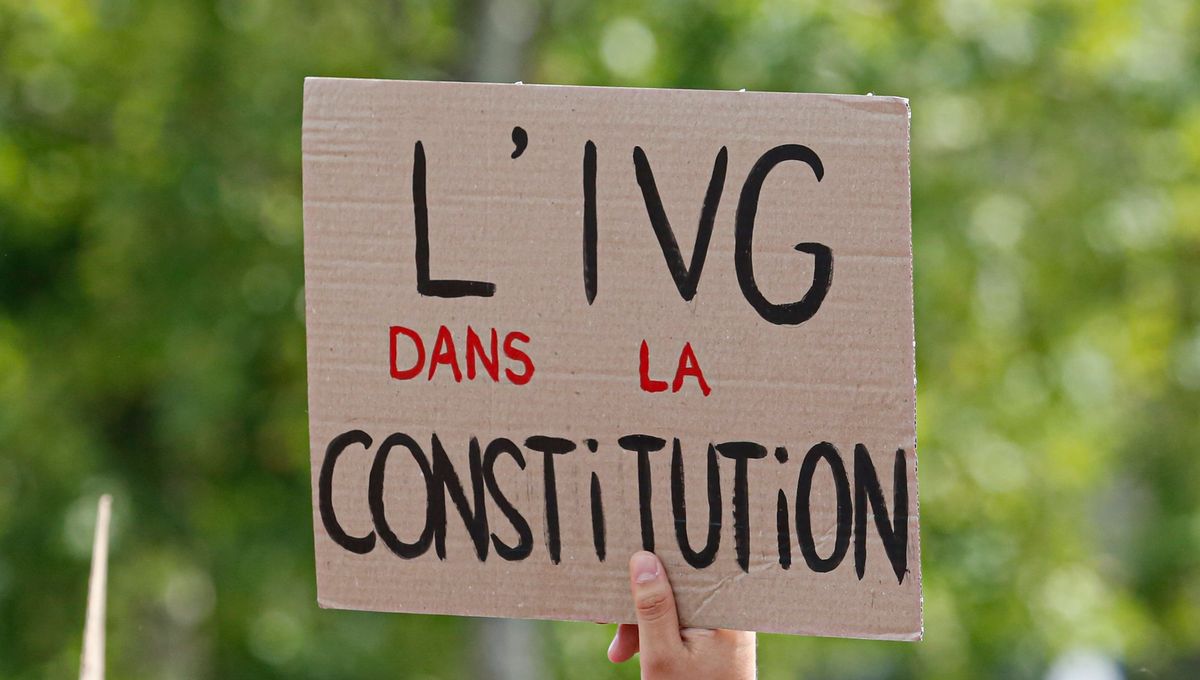 L'IVG
DANS LA
CONSTiTUTiON